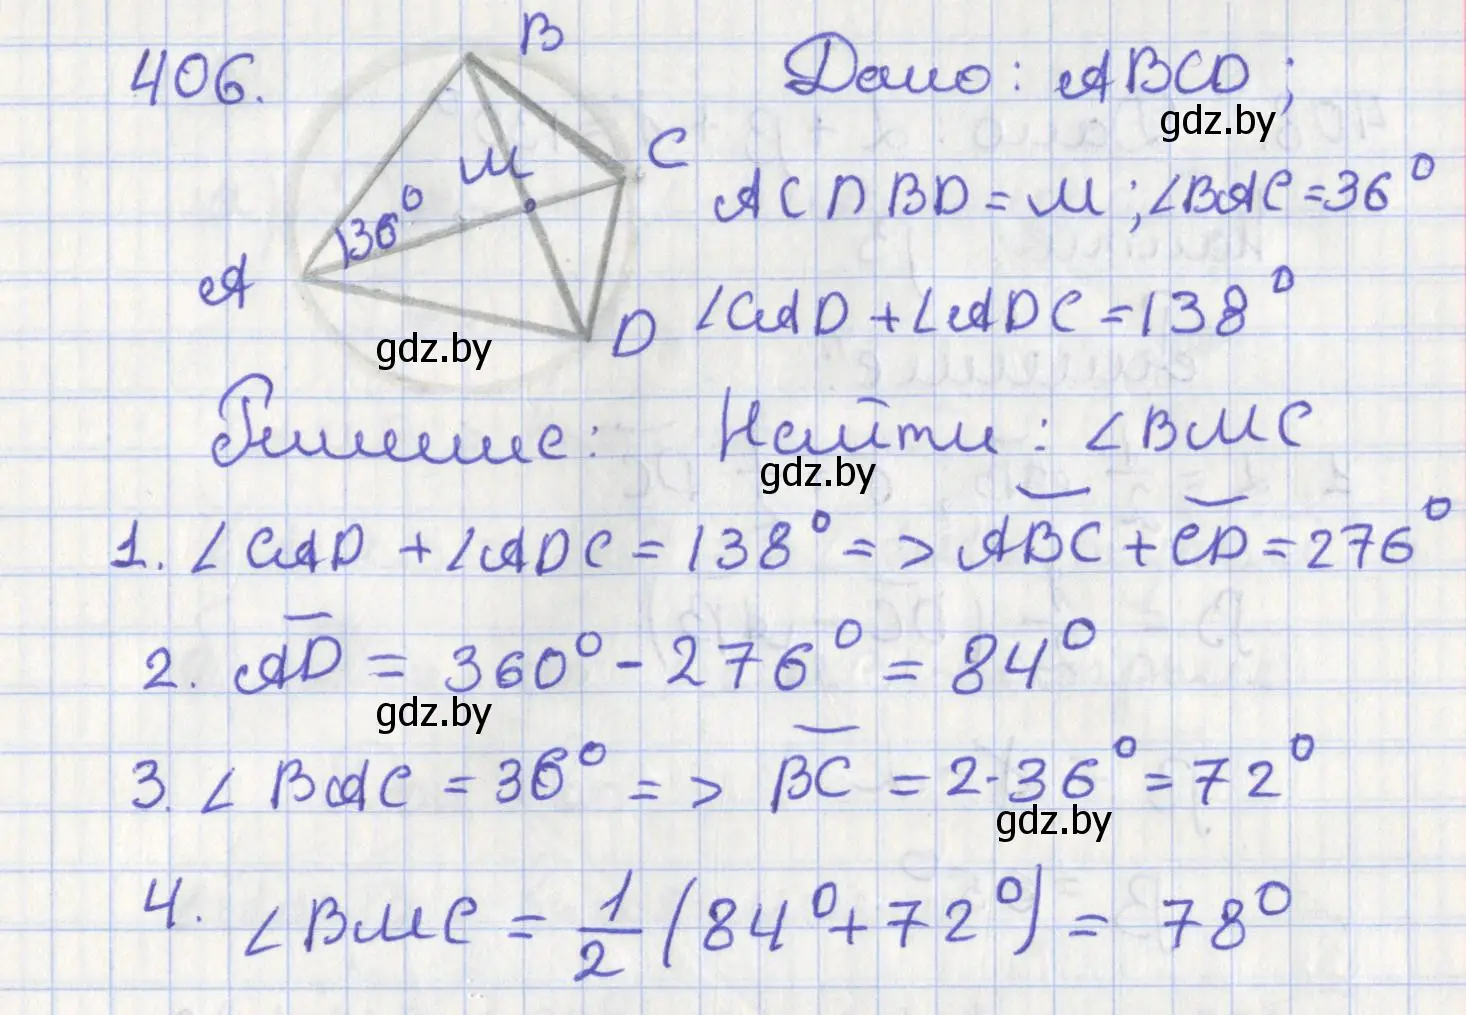 406.
B
C
M
36°
A
D
Дано: ABCD;
gdz.by
AC ∩ BD = M; ∠BAC = 36°
∠CAD + ∠ADC = 138°
gdz.by
Решение:
Найти: ∠BMC
gdz.by
1. ∠CAD + ∠ADC = 138° => ABC + CD = 276°
2. AD = 360° - 276° = 84°
gdz.by
3. ∠BAC = 36° => BC = 2·36° = 72°
gdz.by
4. ∠BMC = 1/2 (84° + 72°) = 78°